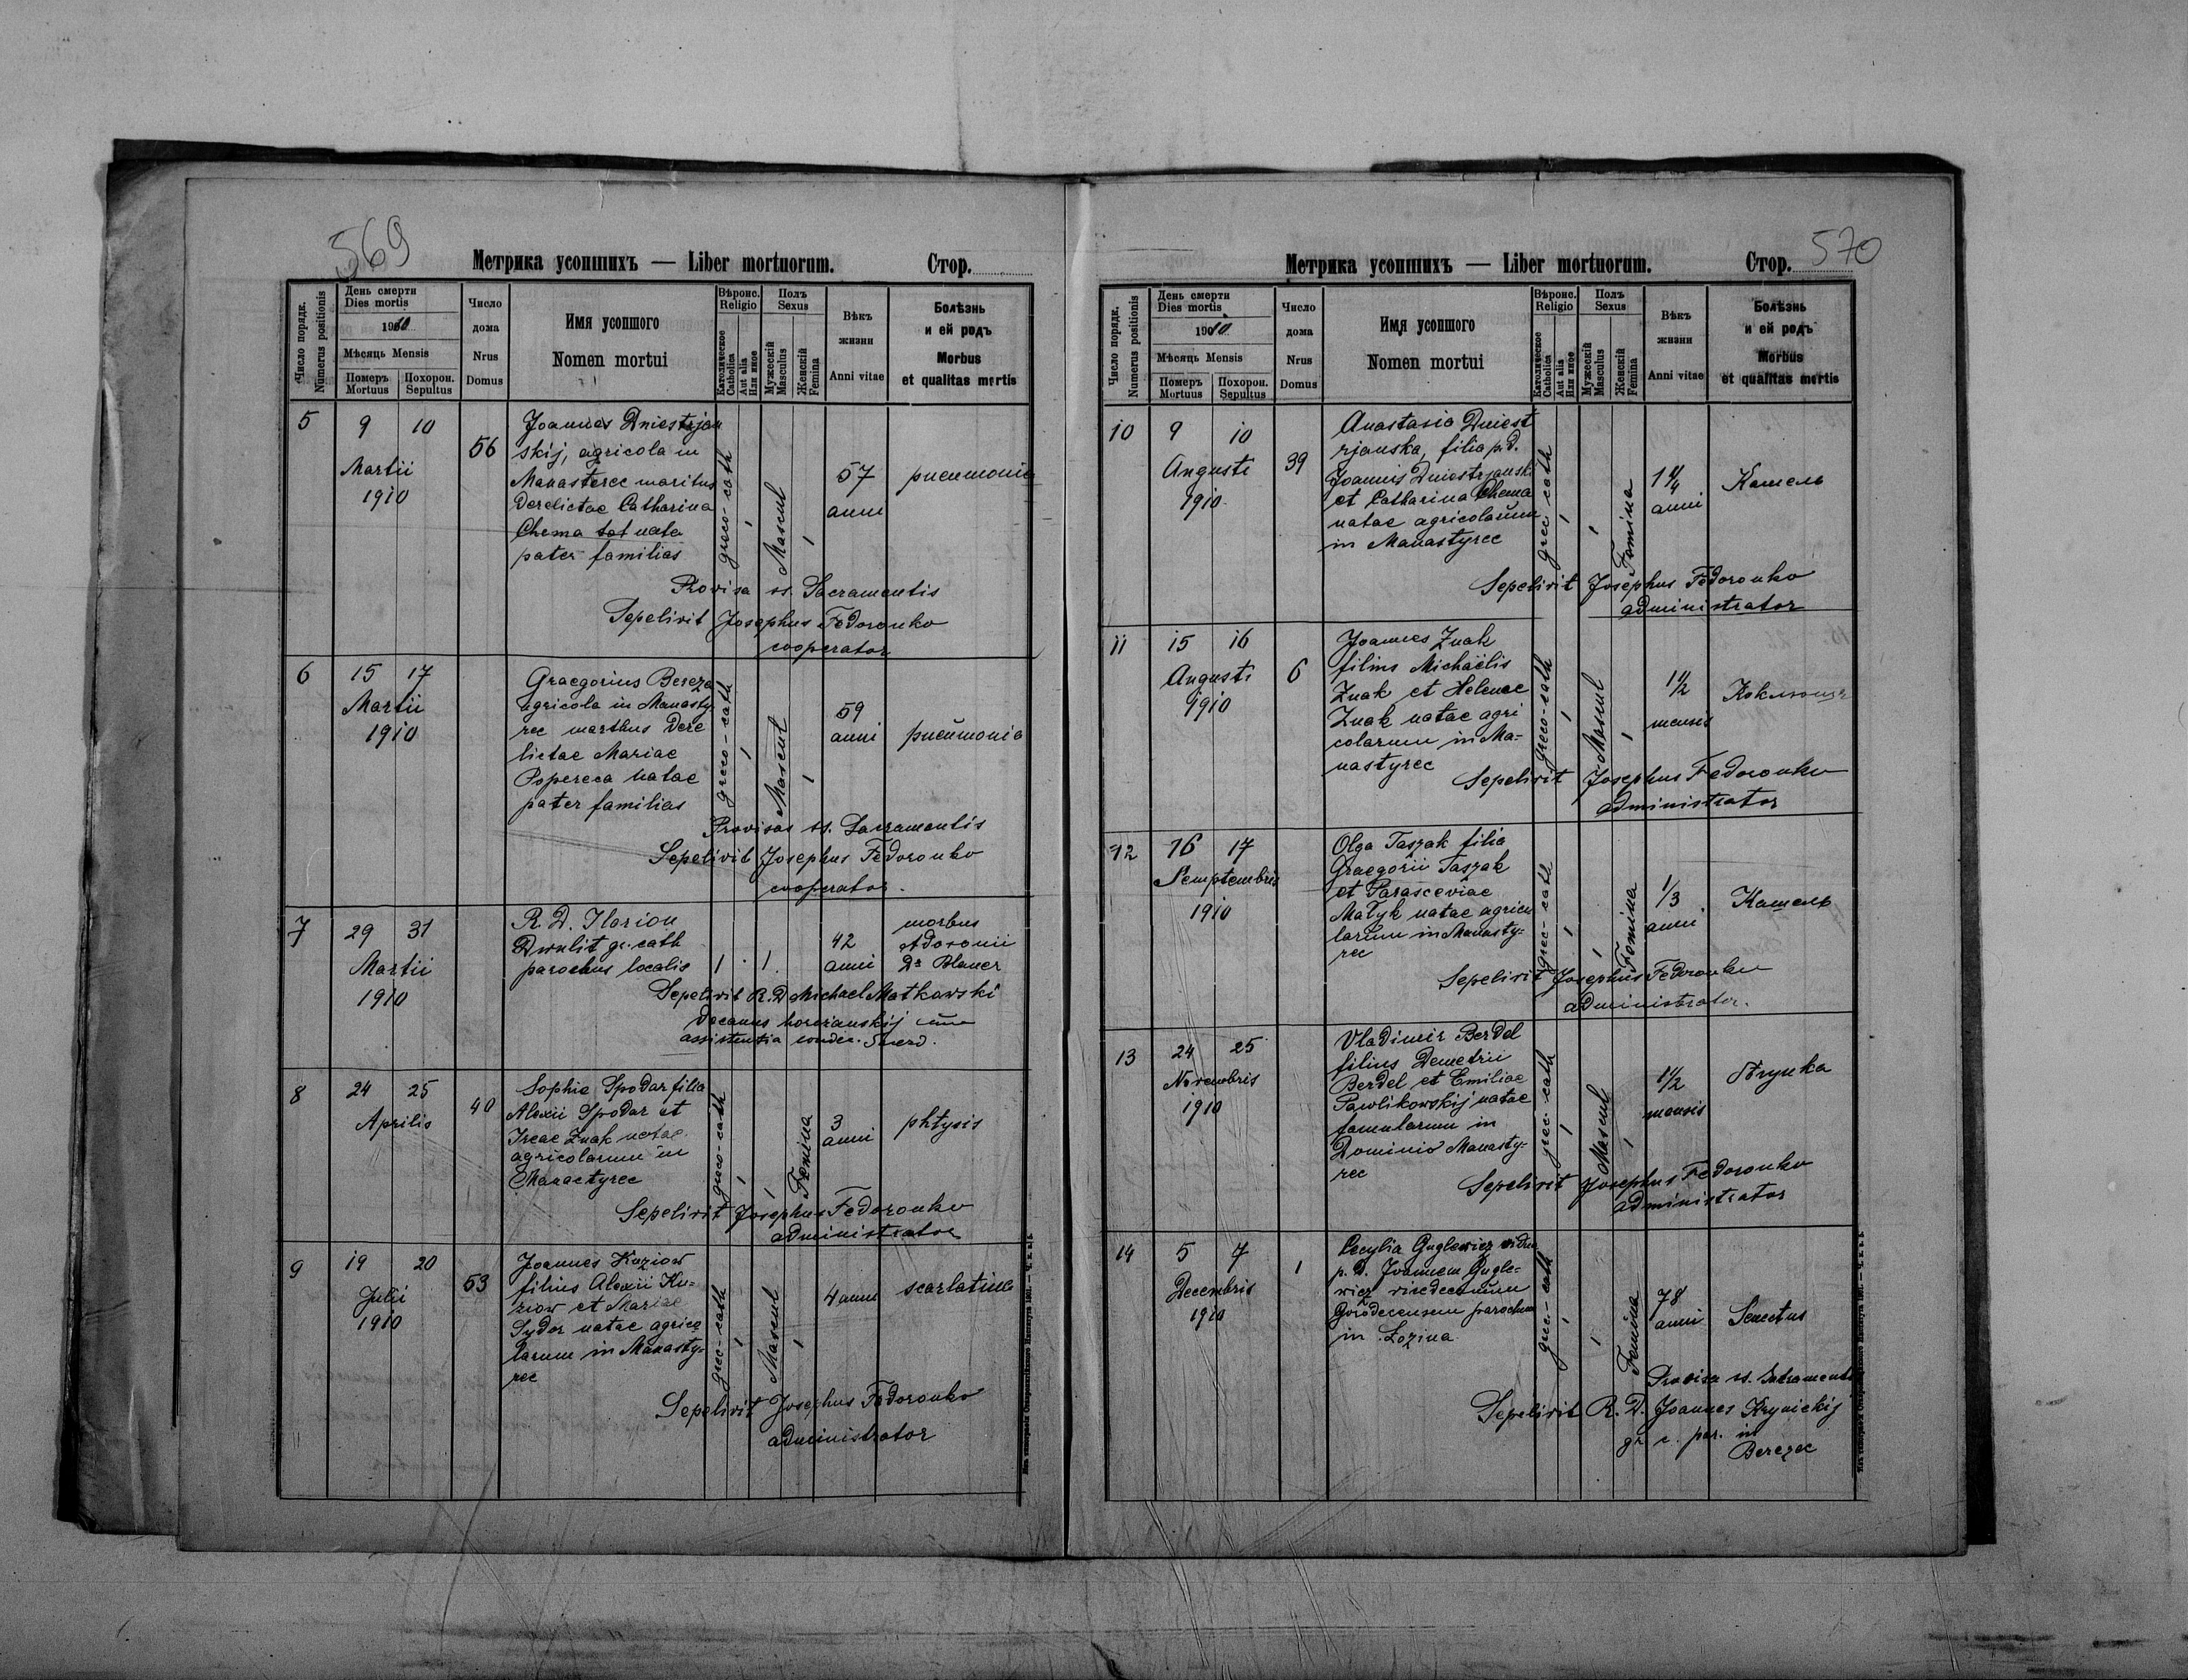 569
Метрика усопшихъ — Liber mortuorum. Стор.
Число порядк.
Numerus positionis
День смерти
Dies mortis
1910
Мѣсяць Mensis
Померъ
Mortuus
Похорон.
Sepultus
Число
дома
Nrus
Domus
Имя усопшого
Nomen mortui
Вѣроис.
Religio
Католическое
Catholica
Aut alia
Или иное
Полъ
Sexus
Мужескій
Masculus
Женскій
Femina
Вѣкъ
жизни
Anni vitae
Болѣзнь
и ей родъ
Morbus
et qualitas mortis
5
9 10
Martii
1910
56
Joannes Dniestrjan
skij, agricola in
Manasterec maritus
derelictae Catharina
Chema nata
pater familias
greco-cath
Mascul
57
anni
pneumonia
Provisa ss. Sacramentis
Sepelivit Josephus Fedoronko
cooperator
6
15 17
Martii
1910
Graegorius Bereza
agricola in Manasty
rec maritus dere
lictae Mariae
Popereca natae
pater familias
greco-cath
Mascul
59
anni
pneumonia
Provisas ss. Sacramentis
Sepelivit Josephus Fedoronko
cooperator.
7
29 31
Martii
1910
R. D. Ilarion
gr. cath
parochus localis
42
anni
morbus
Adoronii
Dr Blauer
Sepelivit R. D Michael Matkowski
decanus horożanskij cum
assistentia
8
24 25
Aprilis
40
Sophia Spodar filia
Alexii Spodar et
Ireae Znak natae
agricolarum in
Manastyrec
greco-cath
Femina
3
anni
phtysis
Sepelivit Josephus Fedoronko
administrator
9
19 20
Julii
1910
53
Joannes Kuziow
filius Alexii Ku-
ziow et Mariae
Sydor natae agrico
larum in Manasty-
rec
grec-cath
Mascul
4 anni
scarlatina
Sepelivit Josephus Fedoronko
administrator
570
Метрика усопшихъ — Liber mortuorum. Стор.
Число порядк.
Numerus positionis
День смерти
Dies mortis
1910
Мѣсяць Mensis
Померъ
Mortuus
Похорон.
Sepultus
Число
дома
Nrus
Domus
Имя усопшого
Nomen mortui
Вѣроис.
Religio
Католическое
Catholica
Aut alia
Или иное
Полъ
Sexus
Мужескій
Masculus
Женскій
Femina
Вѣкъ
жизни
Anni vitae
Болѣзнь
и ей родъ
Morbus
et qualitas mortis
10
9 10
Augusti
1910
39
Anastasia Dniest
rjanska, filia p. d.
Joannis Dniestrjanski
et Catharina Chema
natae agricolarum
in Manastyrec
grec-cath
Femina
1 1/4
anni
Кашель
Sepelivit Josephus Fedoronko
administrator
11
15 16
Augusti
1910
6
Joannes Znak
filius Michaëlis
Znak et Helenae
Znak natae agri
colarum in Ma-
nastyrec
greco-cath
Mascul
1 1/2
mensis
Коклюшъ
Sepelivit Josephus Fedoronko
administrator
12
16 17
Semptembris
1910
Olga Taszak filia
Graegorii Taszak
et Parasceviae
Małyk natae agrico
larum in Manasty-
rec
grec-cath
Femina
1/3
anni
Кашель
Sepelivit Josephus Fedoronko
administrator.
13
24 25
Novembris
1910
Vladimir Berdel
filius Demetrii
Berdel et Emiliae
Pawlikowskij natae
famularum in
Dominio Manasty-
rec
grec-cath
Mascul
1 1/2
mensis
Sepelivit Josephus Fedoronko
administrator
14
5 7
Decembris
1910
1
Cecylia Guglewicz vidua
p. d. Joannem Gugle-
wicz vicedecanum
Grodecensem parochum
in Łozina
grec-cath
Femina
78
anni
Senectus
Provisa ss. Sacramentis
Sepelivit R. D. Joannes Krynickij
gr. c. par. in
Berezec